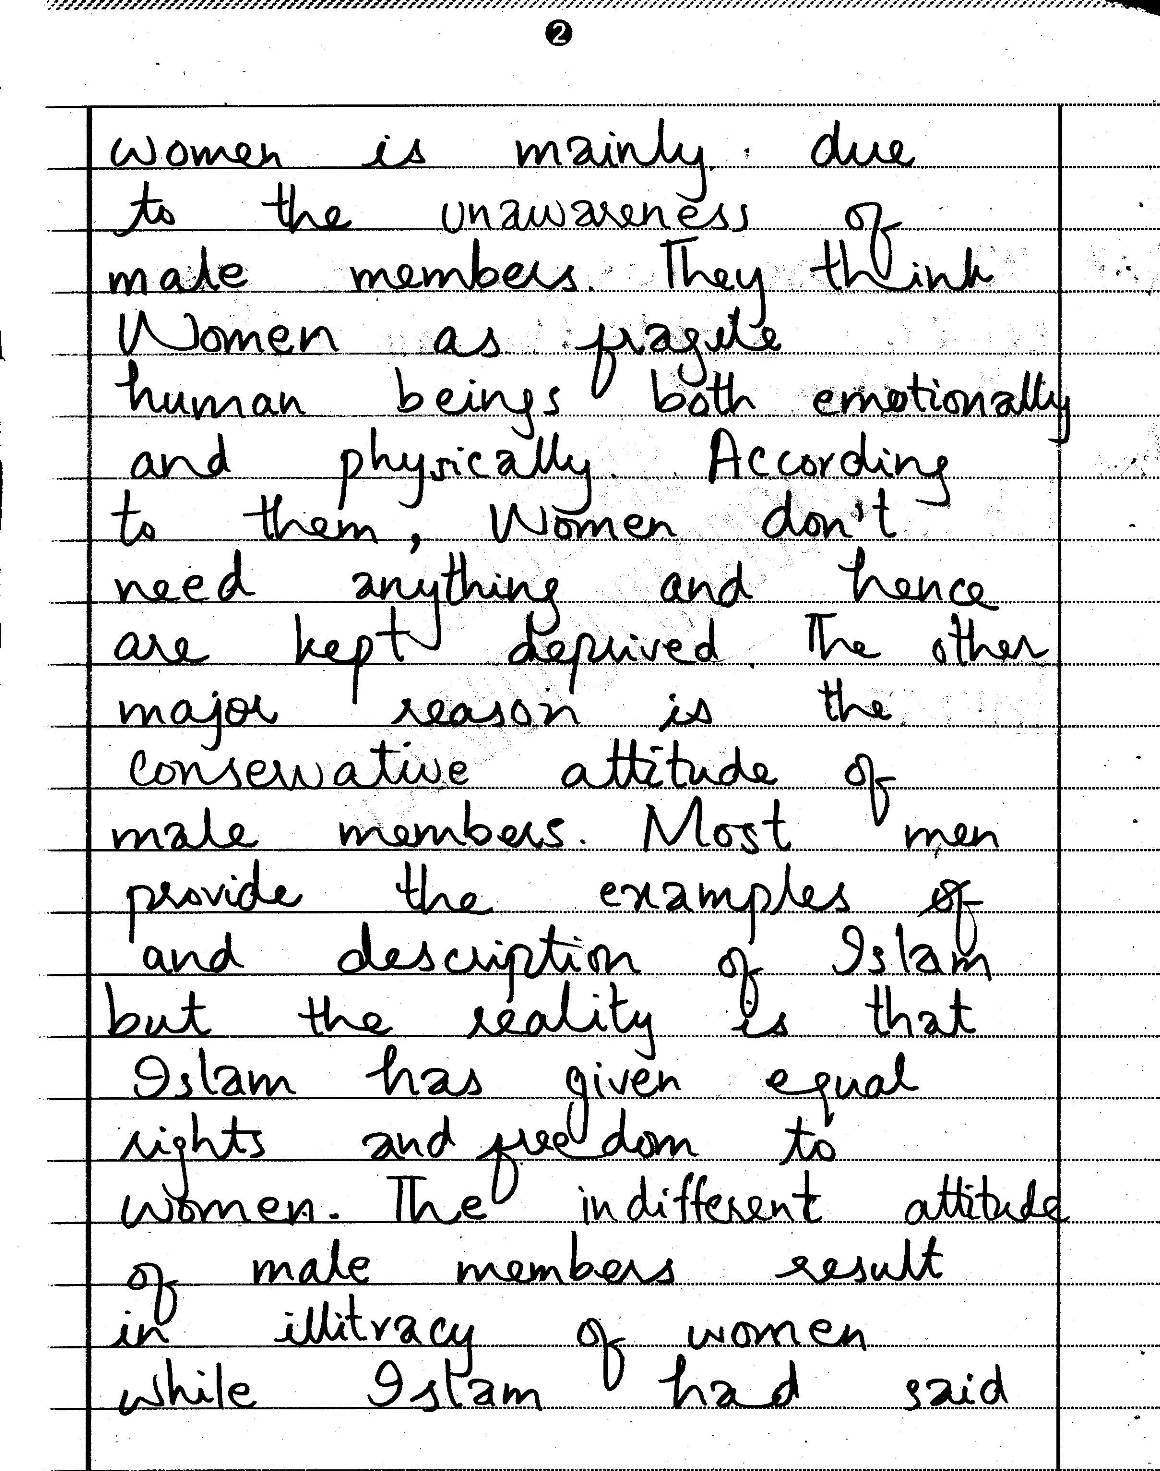 2
women is mainly due
to the unawareness of
male members. They think
Women as fragile
human beings both emotionally
and physically. According
to them, Women don't
need anything and hence
are kept deprived. The other
major reason is the
conservative attitude of
male members. Most men
provide the examples of
and description of Islam
but the reality is that
Islam has given equal
rights and freedom to
women. The indifferent attitude
of male members result
in illitracy of women
while Islam had said